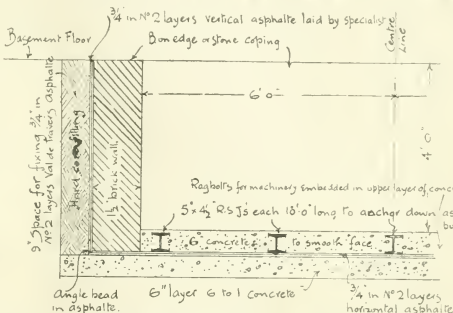 3/4 in Nº2 layers vertical asphalte laid by specialist
Centre
Line
Basement Floor
Bonedge or stone coping
9" Space for fixing 3/4 in
Nº2 layers Val de Travers asphalte
Hard core filling
1 1/2 brick wall.
6'0"
4'0"
Ragbolts for machinery embedded in upper layer of conc
5"x4 1/2" R.S.J's each 18'0" long to anchor down as
bu
6" concrete
to smooth face
Angle bead
in asphalte.
6" layer 6 to 1 concrete
3/4 in Nº2 layers
horizontal asphalte